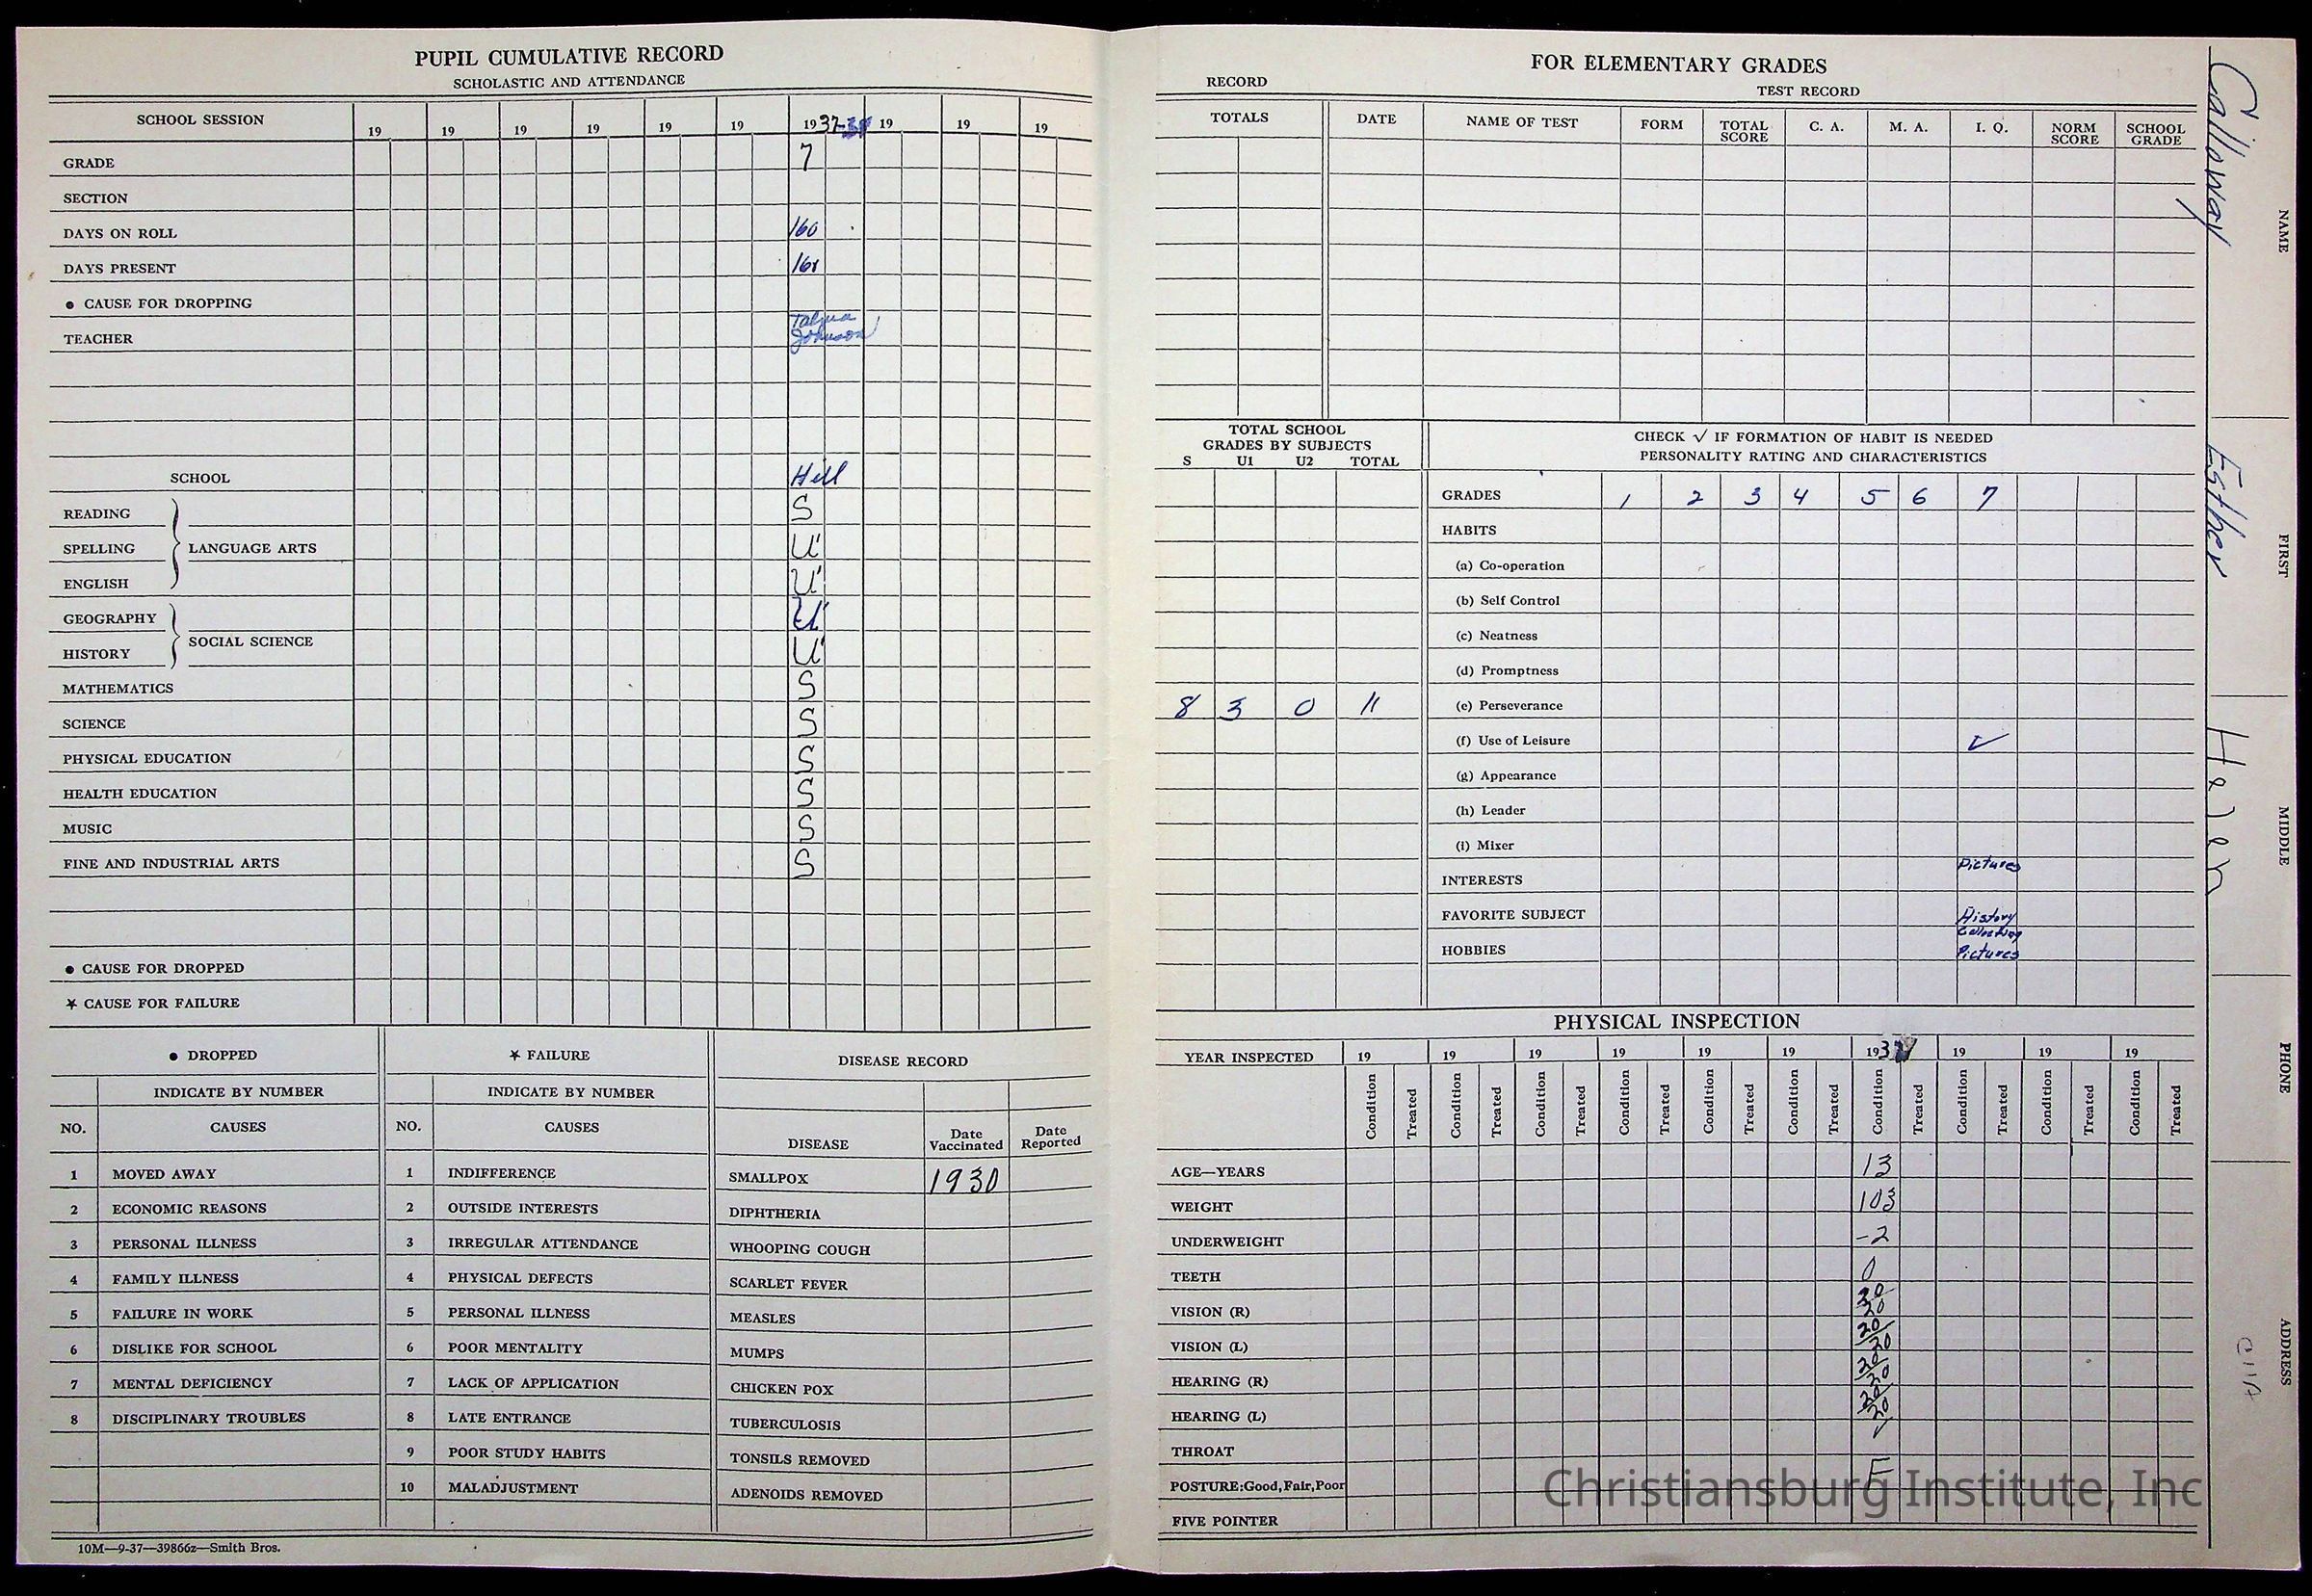 PUPIL CUMULATIVE RECORD
SCHOLASTIC AND ATTENDANCE
SCHOOL SESSION 19 19 19 19 19 19 1937-38 19 19 19
GRADE 7
SECTION
DAYS ON ROLL 160
DAYS PRESENT
● CAUSE FOR DROPPING
TEACHER Johnson
SCHOOL Hill
READING S
SPELLING LANGUAGE ARTS U'
ENGLISH U'
GEOGRAPHY U'
HISTORY SOCIAL SCIENCE U'
MATHEMATICS S
SCIENCE S
PHYSICAL EDUCATION S
HEALTH EDUCATION S
MUSIC S
FINE AND INDUSTRIAL ARTS S
● CAUSE FOR DROPPED
★ CAUSE FOR FAILURE
● DROPPED
INDICATE BY NUMBER
NO. CAUSES
1 MOVED AWAY
2 ECONOMIC REASONS
3 PERSONAL ILLNESS
4 FAMILY ILLNESS
5 FAILURE IN WORK
6 DISLIKE FOR SCHOOL
7 MENTAL DEFICIENCY
8 DISCIPLINARY TROUBLES
★ FAILURE
INDICATE BY NUMBER
NO. CAUSES
1 INDIFFERENCE
2 OUTSIDE INTERESTS
3 IRREGULAR ATTENDANCE
4 PHYSICAL DEFECTS
5 PERSONAL ILLNESS
6 POOR MENTALITY
7 LACK OF APPLICATION
8 LATE ENTRANCE
9 POOR STUDY HABITS
10 MALADJUSTMENT
DISEASE RECORD
DISEASE Date Vaccinated Date Reported
SMALLPOX 1930
DIPHTHERIA
WHOOPING COUGH
SCARLET FEVER
MEASLES
MUMPS
CHICKEN POX
TUBERCULOSIS
TONSILS REMOVED
ADENOIDS REMOVED
10M—9-37—39866z—Smith Bros.
FOR ELEMENTARY GRADES
RECORD
TEST RECORD
TOTALS DATE NAME OF TEST FORM TOTAL SCORE C. A. M. A. I. Q. NORM SCORE SCHOOL GRADE
TOTAL SCHOOL
GRADES BY SUBJECTS
S U1 U2 TOTAL
8 3 0 11
CHECK √ IF FORMATION OF HABIT IS NEEDED
PERSONALITY RATING AND CHARACTERISTICS
GRADES 1 2 3 4 5 6 7
HABITS
(a) Co-operation
(b) Self Control
(c) Neatness
(d) Promptness
(e) Perseverance
(f) Use of Leisure ✓
(g) Appearance
(h) Leader
(i) Mixer
INTERESTS Pictures
FAVORITE SUBJECT History
HOBBIES Collecting
Pictures
PHYSICAL INSPECTION
YEAR INSPECTED 19 19 19 19 19 19 1937 19 19 19
Condition Treated Condition Treated Condition Treated Condition Treated Condition Treated Condition Treated Condition Treated Condition Treated Condition Treated Condition Treated
AGE—YEARS 13
WEIGHT 103
UNDERWEIGHT -2
TEETH 0
VISION (R) 20/20
VISION (L) 20/20
HEARING (R) 20/20
HEARING (L) 20/20
THROAT ✓
POSTURE: Good, Fair, Poor F
FIVE POINTER
Calloway
Esther
Helen
NAME
FIRST
MIDDLE
PHONE
ADDRESS
Christiansburg Institute, Inc